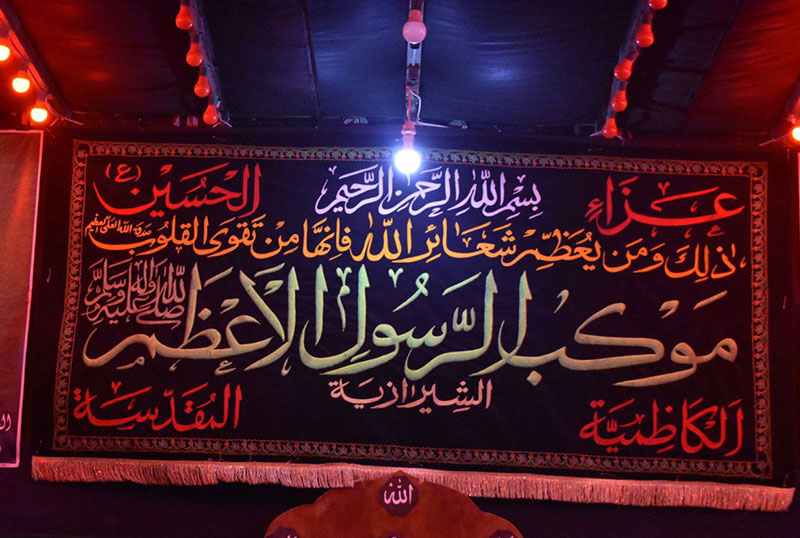 عزاء بسم الله الرحمن الرحيم الحسين (ع)
ذلِكَ وَمَن يُعَظِّمْ شَعَائِرَ الله فَإنَّهَا مِنْ تَقوَى القلُوب صدق الله العلي العظيم
مَوكب الرّسُولِ الأعْظَم صلى الله عليه وآله وسلم
الشيرازية
الكاظميّة المقدّسة
الله